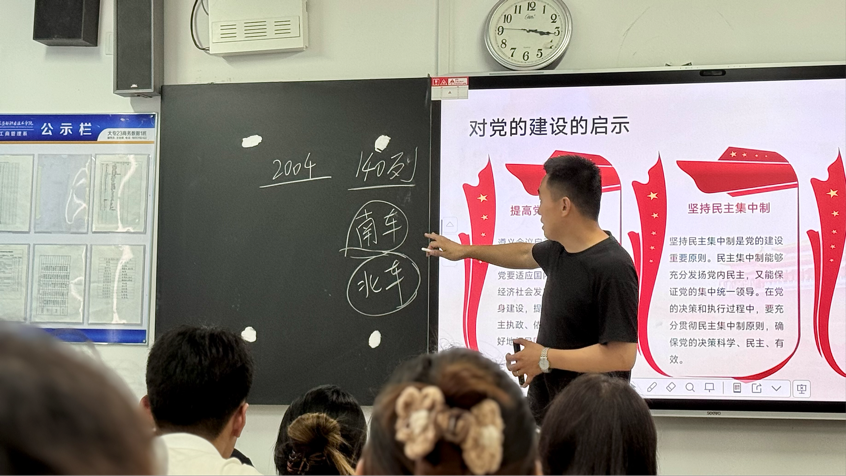 公示栏
2004
140列
南车
北车
对党的建设的启示
提高党
党要适应国
经济社会发
身建设，提
主执政、依
好地
坚持民主集中制
坚持民主集中制是党的建设
重要原则。民主集中制能够
充分发扬党内民主，又能保
证党的集中统一领导。在党
的决策和执行过程中，要充
分贯彻民主集中制原则，确
保党的决策科学、民主、有
效。